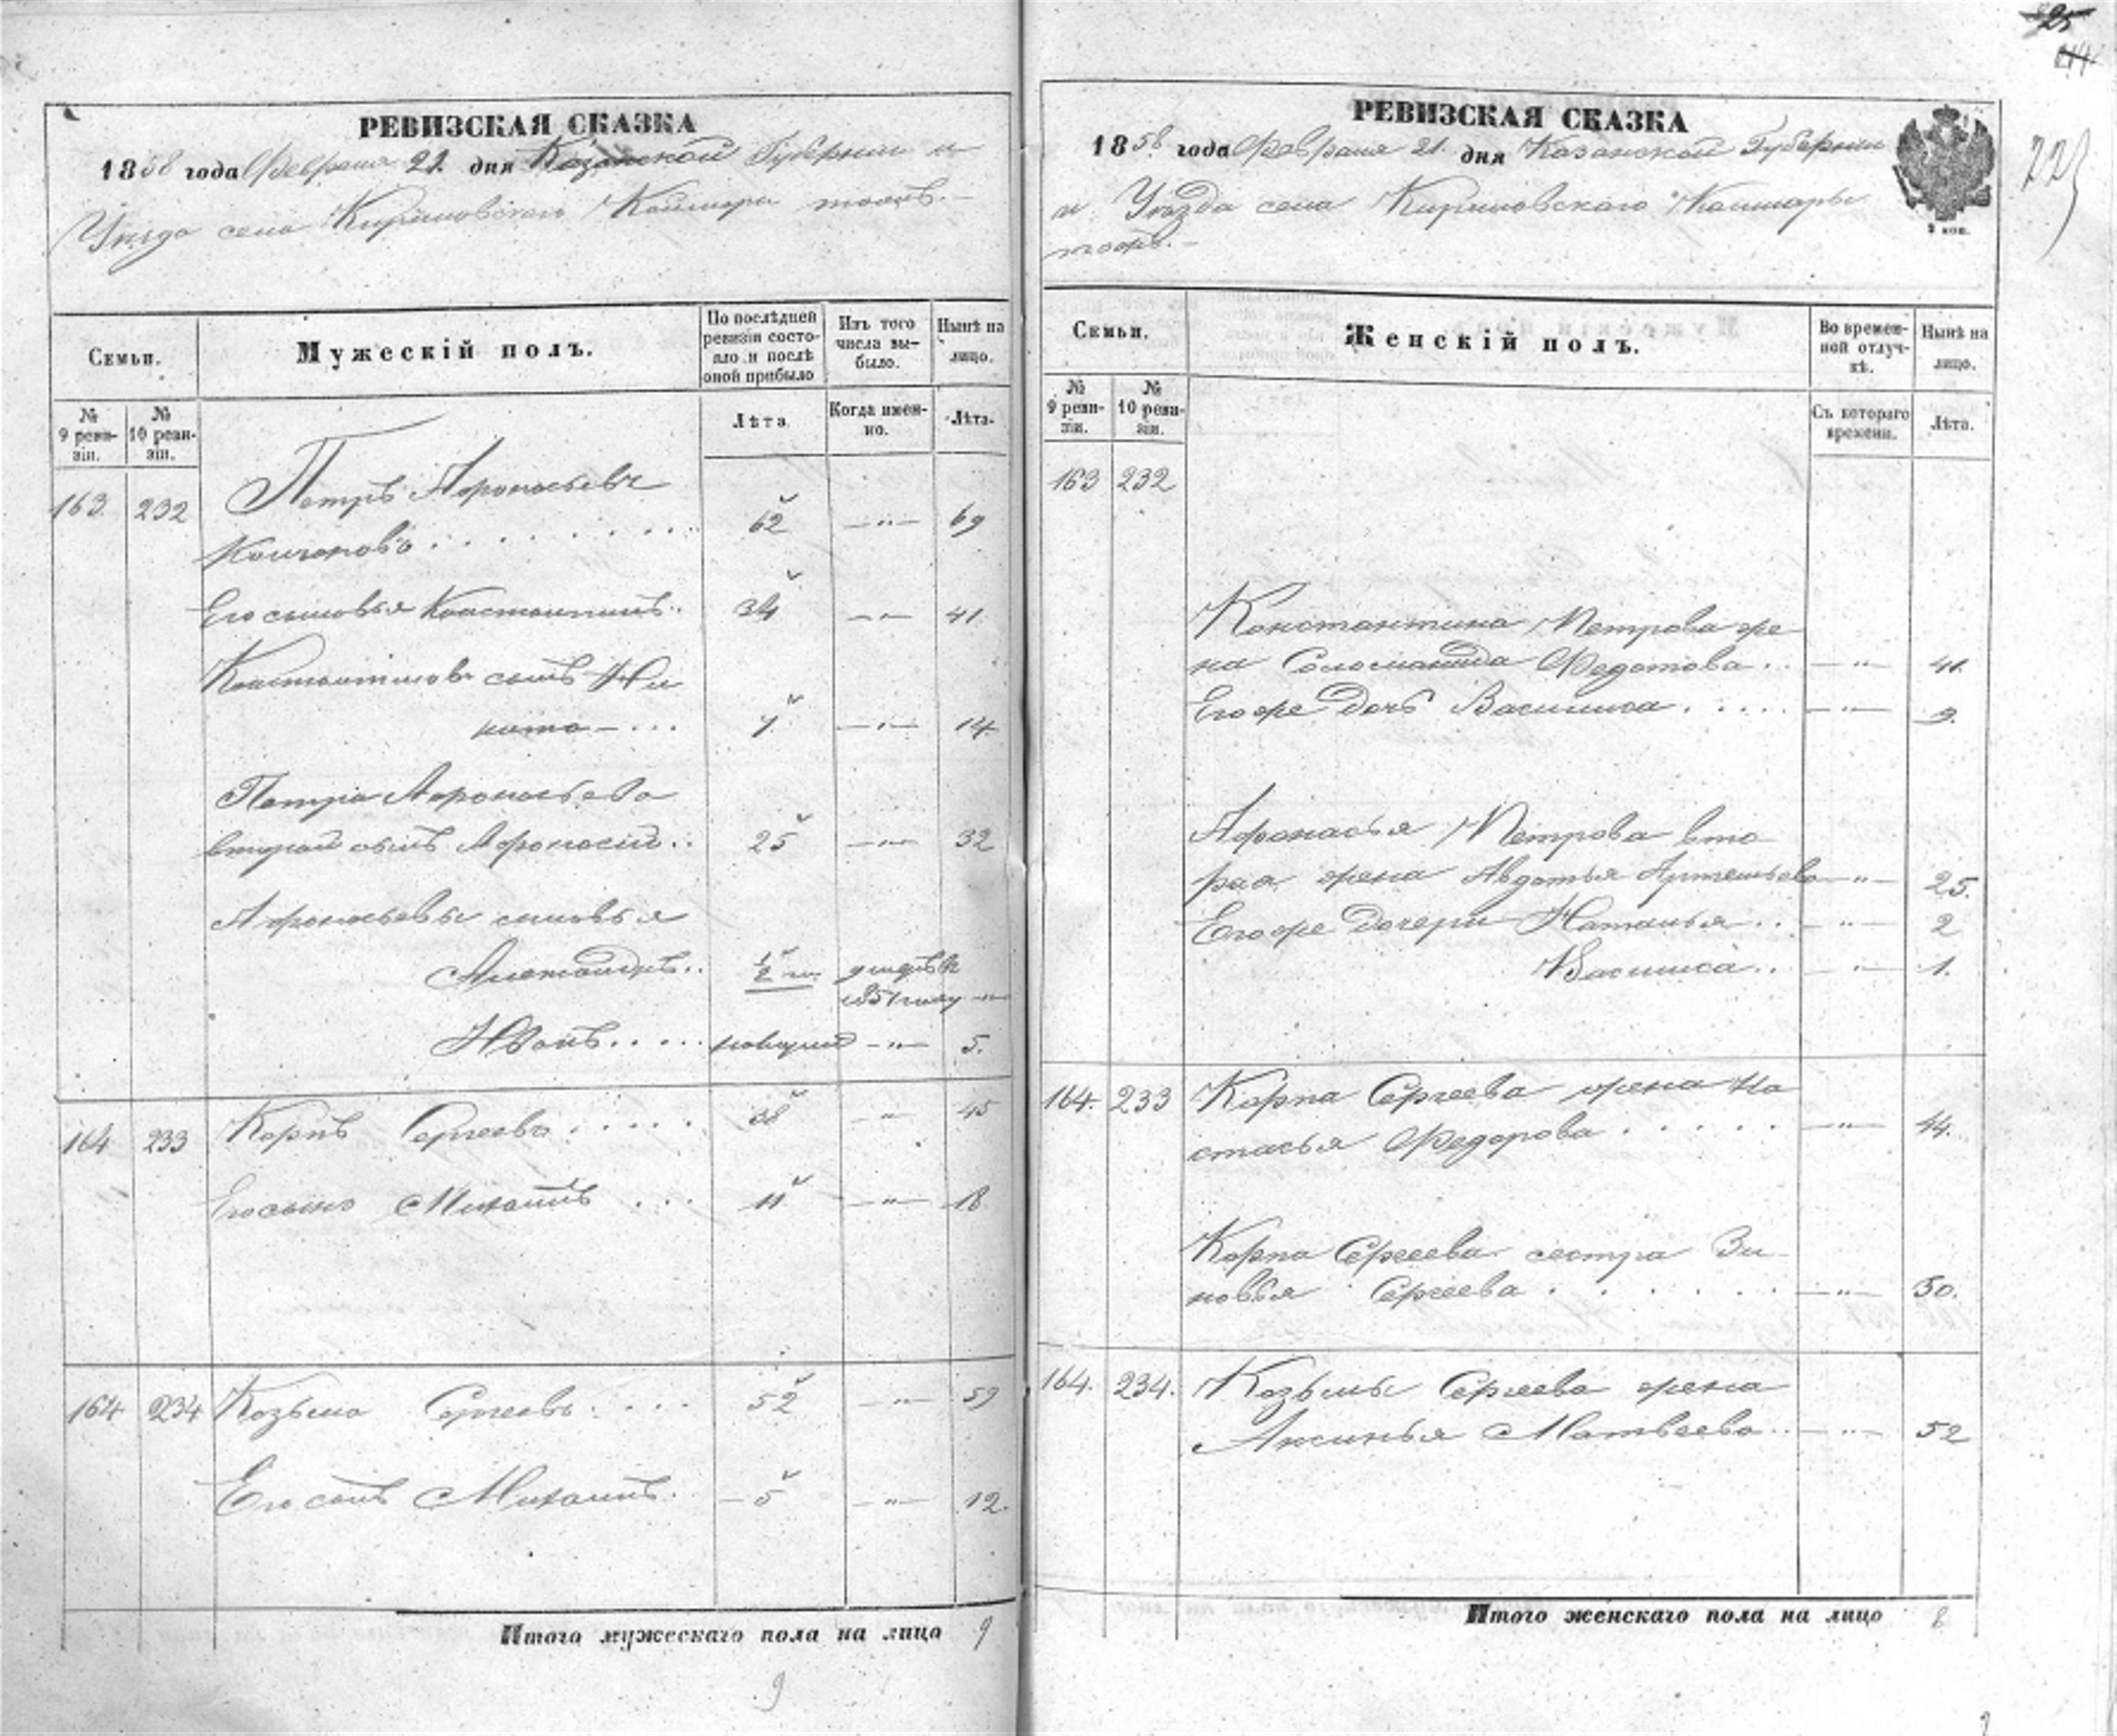 25
225
РЕВИЗСКАЯ СКАЗКА
1858 года Февраля 21. дня Казанской Губернии и
Уезда села Кириловскаго Каймары тожъ.
Семьи.
Мужескій полъ.
По послѣдней
ревизіи состо-
яло и послѣ
оной прибыло
Изъ того
числа вы-
было.
Нынѣ на
лицо.
№
9 реви-
зіи.
№
10 реви-
зіи.
Лѣта.
Когда имен-
но.
Лѣта.
163. 232 Петръ Афонасьевъ
62 —"— 69
Его сыновья Константинъ.. 34 —"— 41.
Константиновъ сынъ Ни
кита — ... 7. —"— 14.
Петра Афонасьева
второй сынъ Афонасій.. 25 —"— 32
Афонасьевы сыновья
Александръ.. 1/2 г. умеръ въ
1851 году —"—
Иванъ..... новорож —"— 5.
164 233 Карпъ Сергеевъ..... 38 " 45
Его сынъ Михаилъ ... 11 —"— 18
164 234 Козьма Сергеевъ.... 52 —"— 59
Его сынъ Михаилъ. 5 —"— 12.
Итого мужескаго пола на лицо 9
9
РЕВИЗСКАЯ СКАЗКА
1858 года Февраля 21. дня Казанской Губернии
и Уезда села Кириловскаго Каймары
тожъ.
2 коп.
Семьи.
Женскій полъ.
Во времен-
ной отлуч-
кѣ.
Нынѣ на
лицо.
№
9 реви-
зіи.
№
10 реви-
зіи.
Съ котораго
времени.
Лѣта.
163 232
Константина Петрова же
на Соломанида Федотова.. —"— 41.
Егоже дочь Василиса..... —"— 9.
Афонасья Петрова вто
рая жена Авдотья Артемьева —"— 25.
Егоже дочери Наталья.. —"— 2
Василиса.. —"— 1.
164. 233 Карпа Сергеева жена На
стасья Федорова..... —"— 44.
Карпа Сергеева сестра Зи
новья Сергеева ...... —"— 50.
164. 234. Козьмы Сергеева жена
Аксинья Матвеева.. —"— 52
Итого женскаго пола на лицо 8